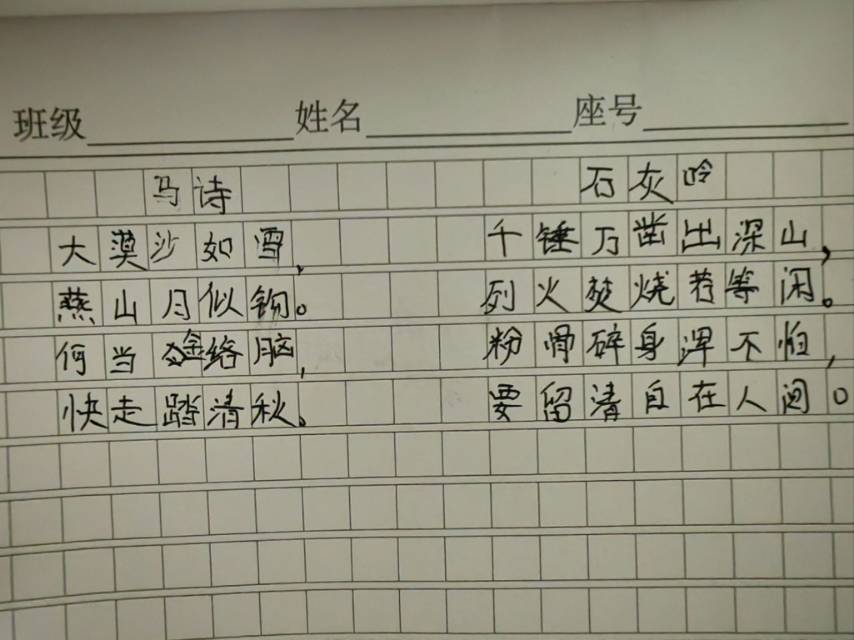 班级 姓名 座号
马诗
大漠沙如雪,
燕山月似钩。
何当金络脑,
快走踏清秋。
石灰吟
千锤万凿出深山,
列火焚烧若等闲。
粉骨碎身浑不怕,
要留清自在人间。